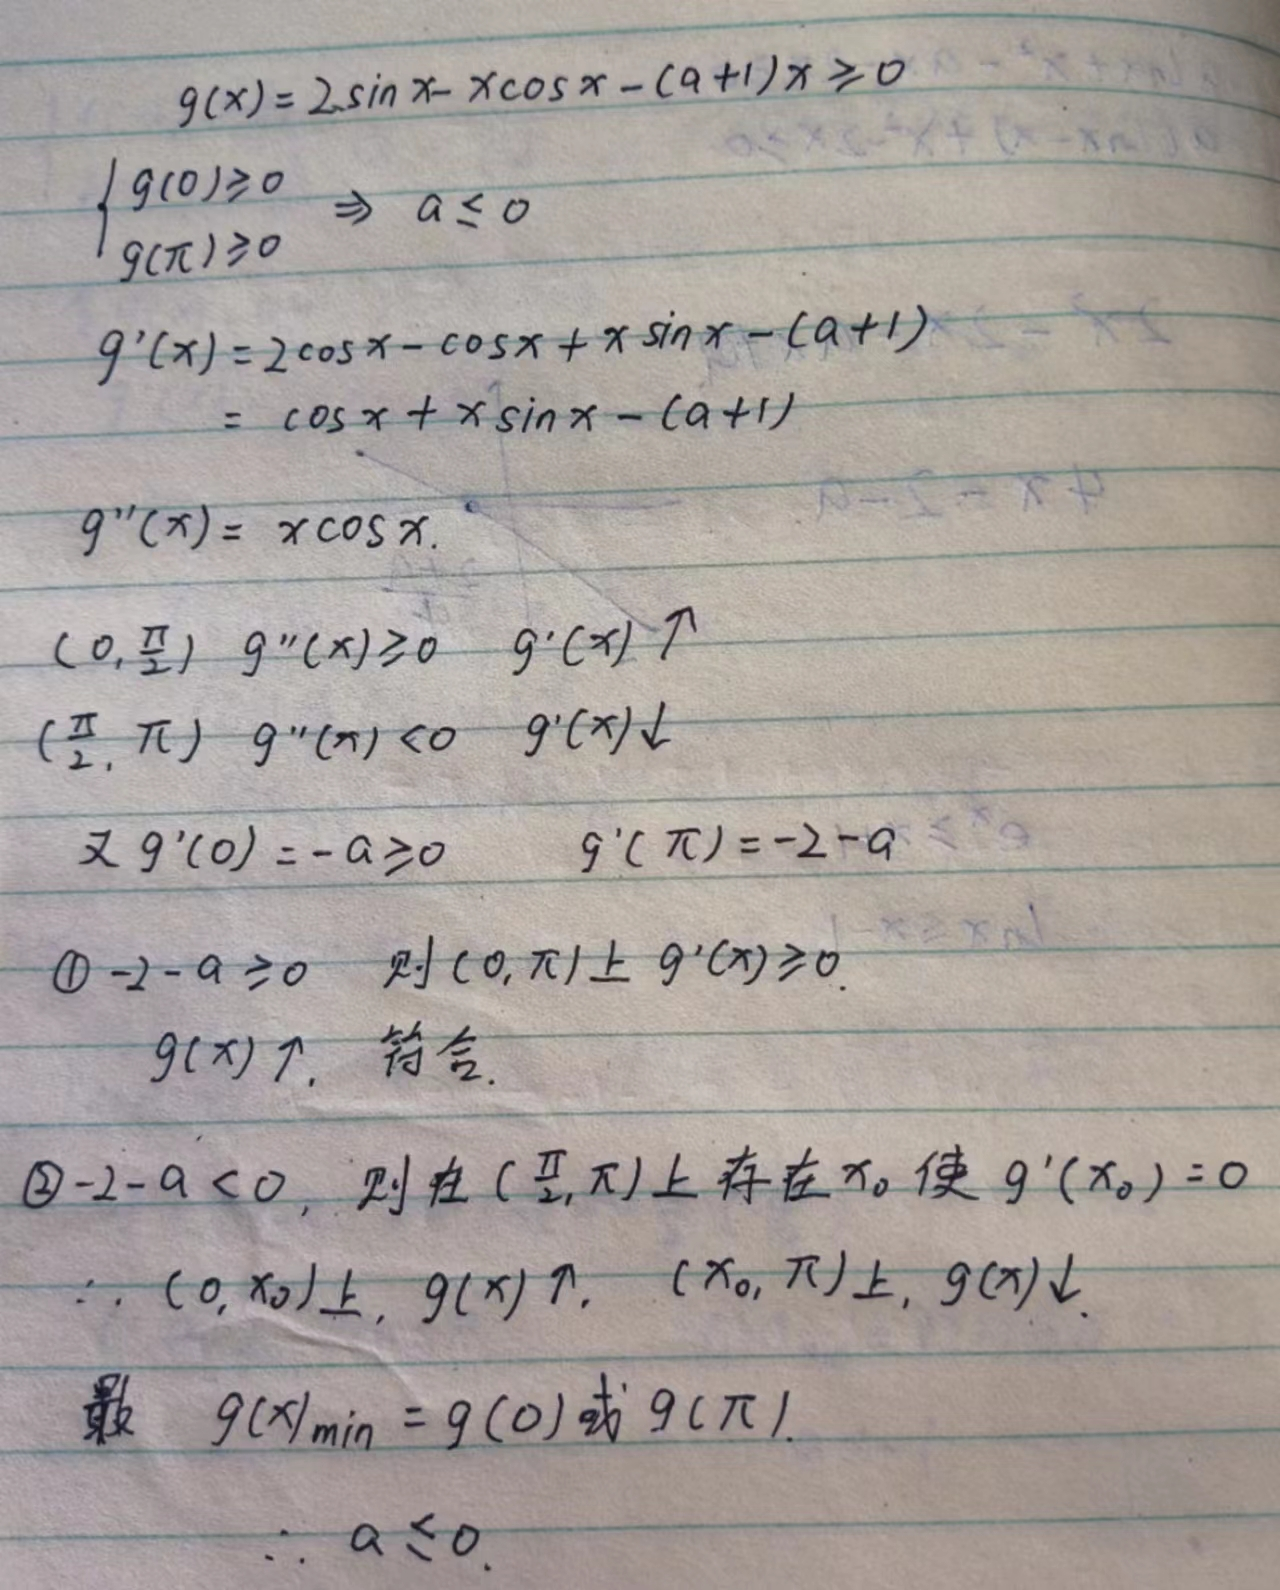 g(x) = 2sin x - xcos x - (a+1)x ≥ 0
{ g(0) ≥ 0
g(π) ≥ 0 ⇒ a ≤ 0
g'(x) = 2cos x - cos x + x sin x - (a+1)
= cos x + x sin x - (a+1)
g''(x) = x cos x.
(0, π/2) g''(x) ≥ 0 g'(x) ↑
(π/2, π) g''(x) < 0 g'(x) ↓
又 g'(0) = -a ≥ 0 g'(π) = -2-a
① -2-a ≥ 0 则(0, π)上 g'(x) ≥ 0.
g(x) ↑. 符合.
② -2-a < 0, 则在(π/2, π)上存在 x₀ 使 g'(x₀) = 0
∴ (0, x₀)上, g(x) ↑. (x₀, π)上, g(x) ↓.
g(x)min = g(0) 或 g(π).
∴ a ≤ 0.